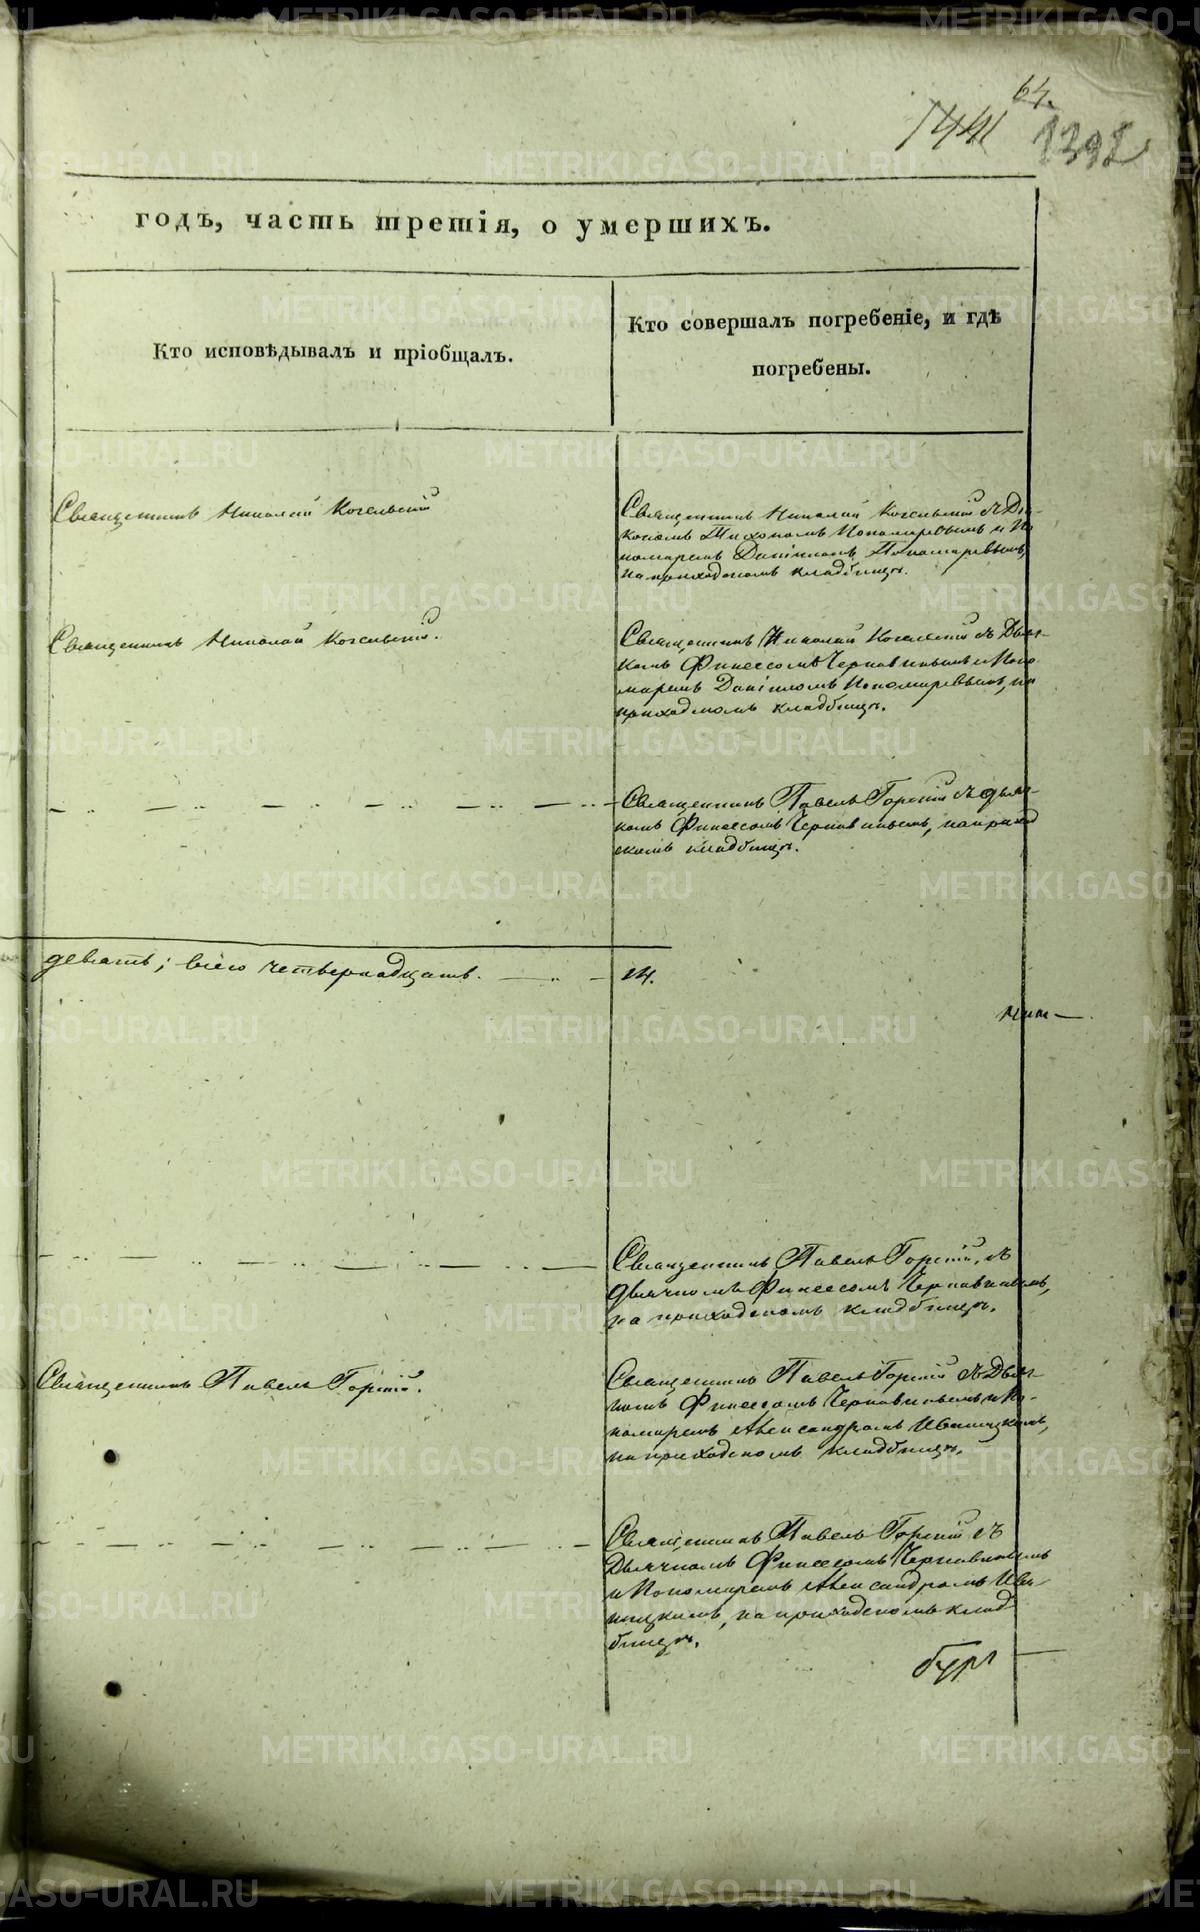 64.
1441 1392
годъ, часть третія, о умершихъ.
Кто исповѣдывалъ и пріобщалъ.
Кто совершалъ погребеніе, и гдѣ
погребены.
Священникъ Николай
Священникъ Николай
кономъ Тихономъ Пономаревымъ и По
номаремъ Даніиломъ Пономаревымъ,
на приходскомъ кладбищѣ.
Священникъ Николай
Священникъ Николай съ Дьяч-
комъ Финеесомъ Чернавинымъ и Поно
маремъ Даніиломъ Пономаревымъ, на
приходскомъ кладбищѣ.
Священникъ Павелъ Горскій съ дьяч-
комъ Финеесомъ Чернавинымъ, на приход
скомъ кладбищѣ.
девять; всего четырнадцать.
14.
Священникъ Павелъ Горскій, съ
дьячкомъ Финеесомъ Чернавинымъ,
на приходскомъ кладбищѣ.
Священникъ Павелъ Горскій.
Священникъ Павелъ Горскій съ Дьяч-
комъ Финеесомъ Чернавинымъ и По-
номаремъ Александромъ
на приходскомъ кладбищѣ.
Священникъ Павелъ Горскій съ
Дьячкомъ Финеесомъ Чернавинымъ
и Пономаремъ Александромъ
на приходскомъ клад
бищѣ.
METRIKI.GASO-URAL.RU